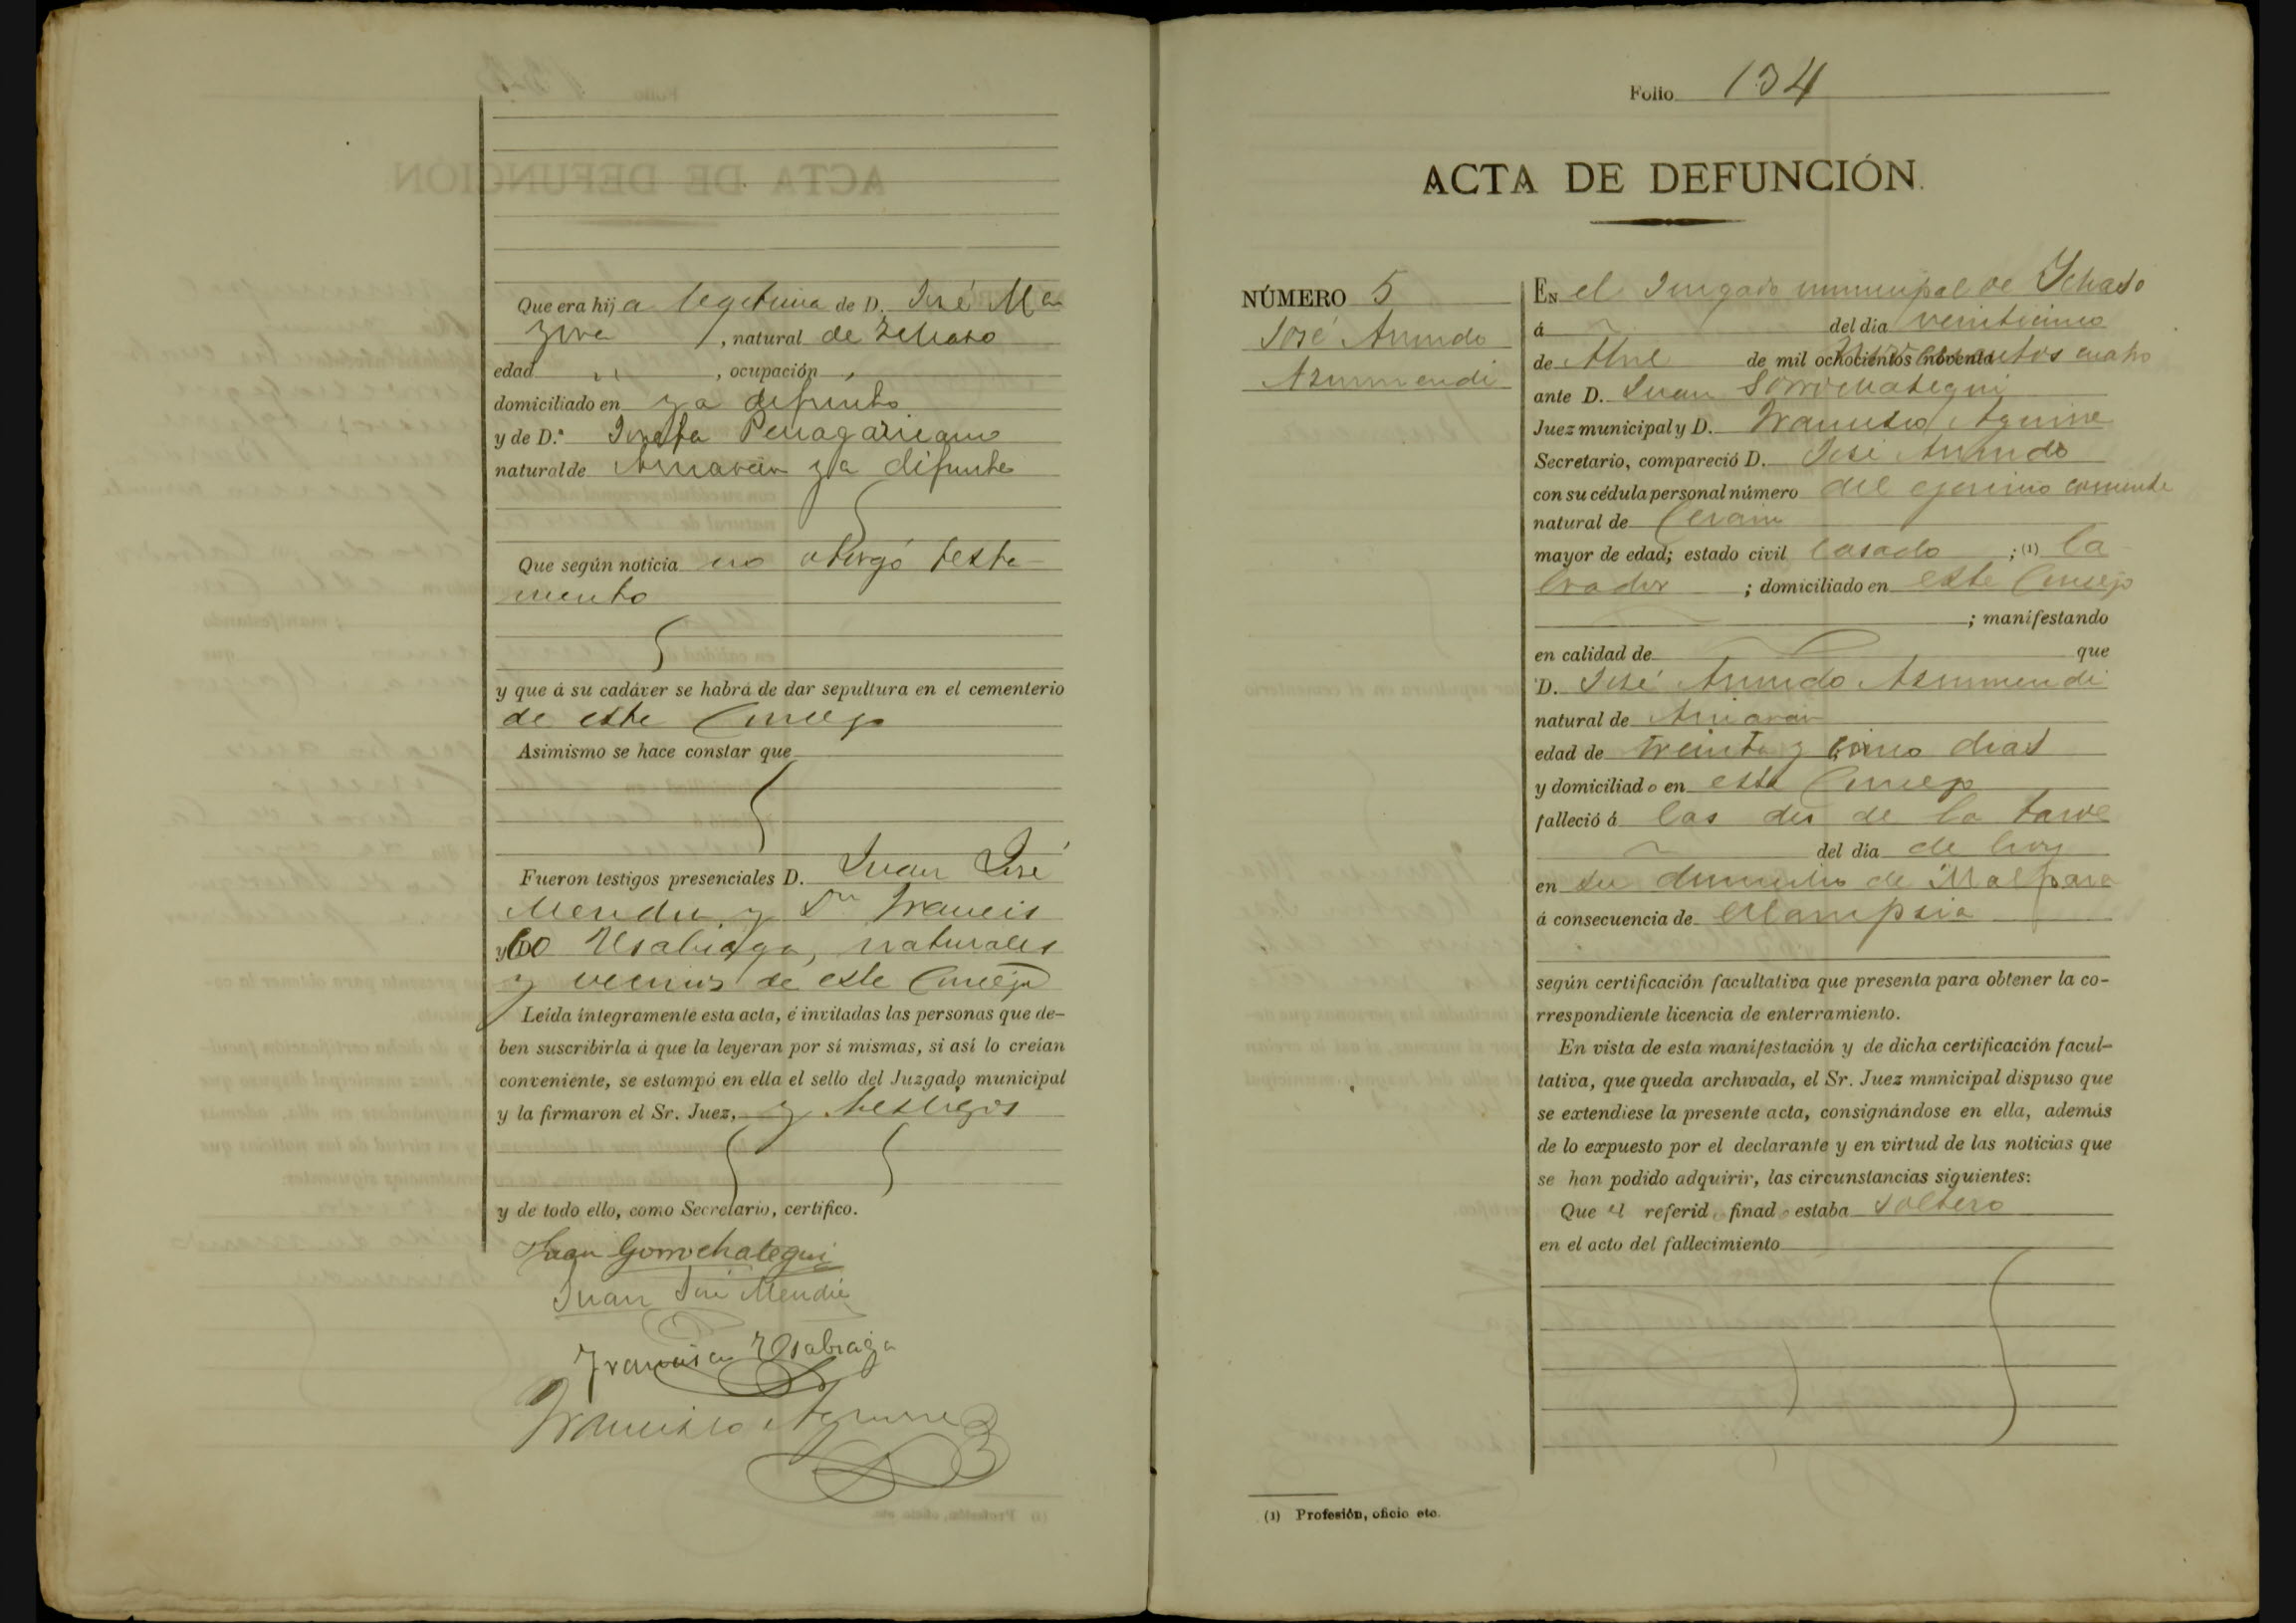 Que era hija legitima de D. José Ma
, natural de Ichaso
edad , ocupación
domiciliado en ya difunto
y de D.ª Josefa Penagaricano
natural de Arriaran ya difunta
Que según noticia no otorgó testa-
mento
y que á su cadáver se habrá de dar sepultura en el cementerio
de este Concejo
Asimismo se hace constar que
Fueron testigos presenciales D. Juan José
Mendia y Dn Francis
y co Usabiaga, naturales
y vecinos de este Concejo
Leída íntegramente esta acta, é invitadas las personas que de-
ben suscribirla á que la leyeran por sí mismas, si así lo creían
conveniente, se estampó en ella el sello del Juzgado municipal
y la firmaron el Sr. Juez, y testigos
y de todo ello, como Secretario, certifico.
Juan Gorrochategui
Juan José Mendia
Francisco Usabiaga
Francisco Aguirre
Folio 134
ACTA DE DEFUNCIÓN.
NÚMERO 5
José Arrundo
Azurmendi
EN el Jusgado municipal de Ichaso
á del dia veinticinco
de de mil ochocientos noventa cuatro
ante D. Juan Gorrochategui
Juez municipal y D. Francisco Aguirre
Secretario, compareció D. José Arrundo
con su cédula personal número del ejercicio corriente
natural de Cerain
mayor de edad; estado civil casado ; (1) la
brador ; domiciliado en este Concejo
; manifestando
en calidad de que
D. José Arrundo Azurmendi
natural de Arriaran
edad de treinta y cinco dias
y domiciliado en este Concejo
falleció á las dos de la tarde
del dia de hoy
en su domicilio de
á consecuencia de eclampsia
según certificación facultativa que presenta para obtener la co-
rrespondiente licencia de enterramiento.
En vista de esta manifestación y de dicha certificación facul-
tativa, que queda archivada, el Sr. Juez municipal dispuso que
se extendiese la presente acta, consignándose en ella, además
de lo expuesto por el declarante y en virtud de las noticias que
se han podido adquirir, las circunstancias siguientes:
Que el referido finado estaba soltero
en el acto del fallecimiento
(1) Profesión, oficio etc.